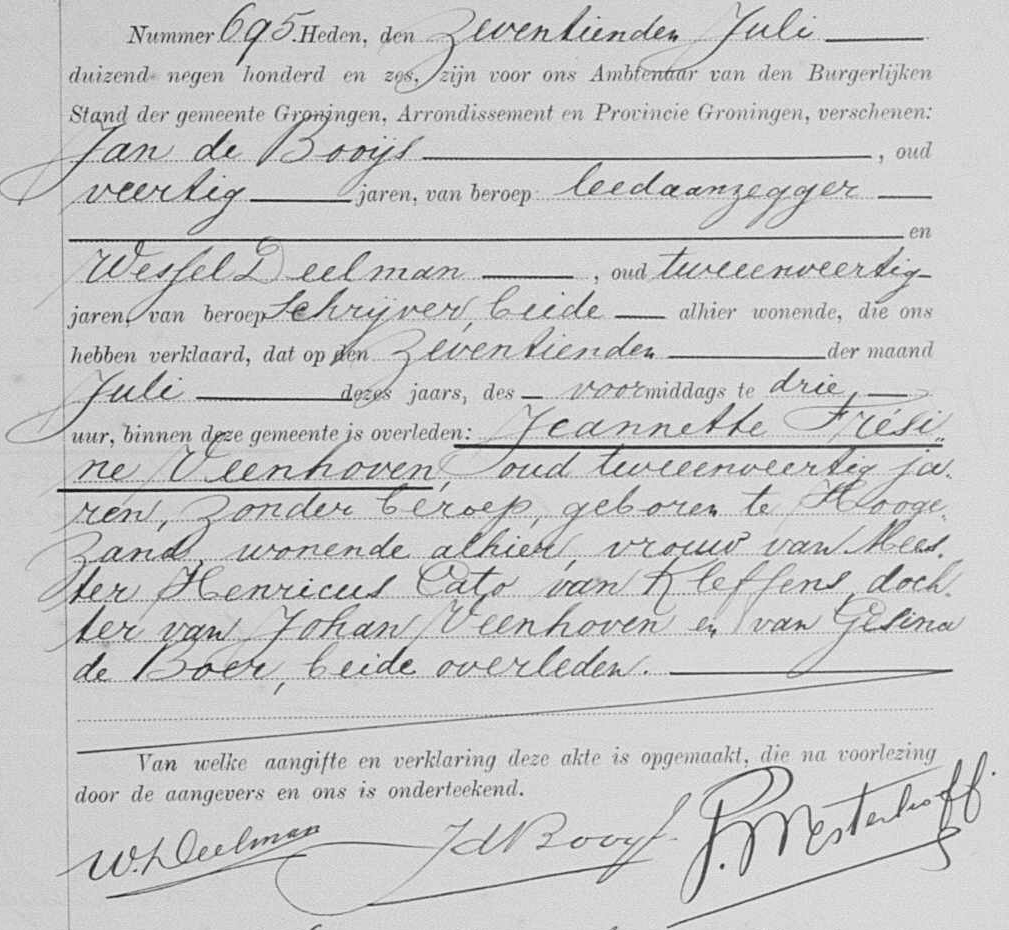 Nummer 695. Heden, den Zeventienden Juli
duizend negen honderd en zes, zijn voor ons Ambtenaar van den Burgerlijken
Stand der gemeente Groningen, Arrondissement en Provincie Groningen, verschenen:
Jan de Booijs, oud
veertig jaren, van beroep leedaanzegger
en
Wessel Deelman, oud tweeenveertig
jaren, van beroep schrijver, beide alhier wonende, die ons
hebben verklaard, dat op den zeventienden der maand
Juli dezes jaars, des voormiddags te drie
uur, binnen deze gemeente is overleden: Jeannette Frési„
ne Veenhoven, oud tweeenveertig ja„
ren, zonder beroep, geboren te Hooge„
zand, wonende alhier, vrouw van Mees„
ter Henricus Cato van Kleffens, doch„
ter van Johan Veenhoven en van Gesina
de Boer, beide overleden.
Van welke aangifte en verklaring deze akte is opgemaakt, die na voorlezing
door de aangevers en ons is onderteekend.
W. Deelman JdBooijs P. Westerhoff.